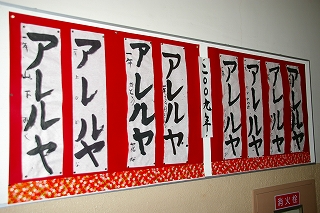 アレルヤ
アレルヤ
アレルヤ
アレルヤ
二〇〇九年
アレルヤ
アレルヤ
アレルヤ
アレルヤ
消火栓